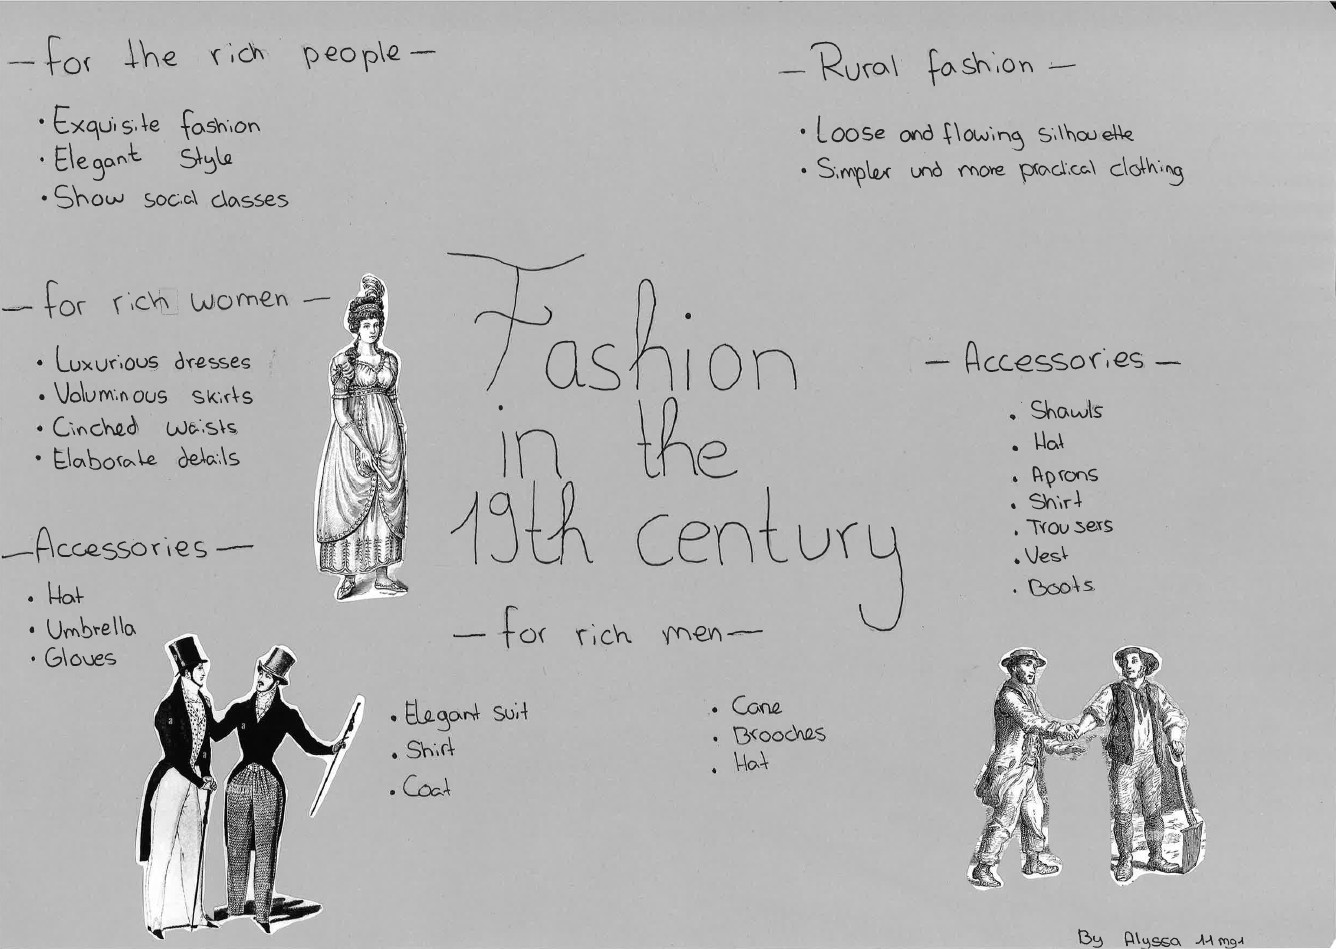 — for the rich people —
• Exquisite fashion
• Elegant Style
• Show social classes
— for rich women —
• Luxurious dresses
• Voluminous skirts
• Cinched waists
• Elaborate details
— Accessories —
• Hat
• Umbrella
• Gloves
Fashion
in the
19th century
— for rich men —
• Elegant suit
• Shirt
• Coat
• Cane
• Brooches
• Hat
— Rural fashion —
• Loose and flowing silhouette
• Simpler und more practical clothing
— Accessories —
• Shawls
• Hat
• Aprons
• Shirt
• Trousers
• Vest
• Boots
By Alyssa 11mg1